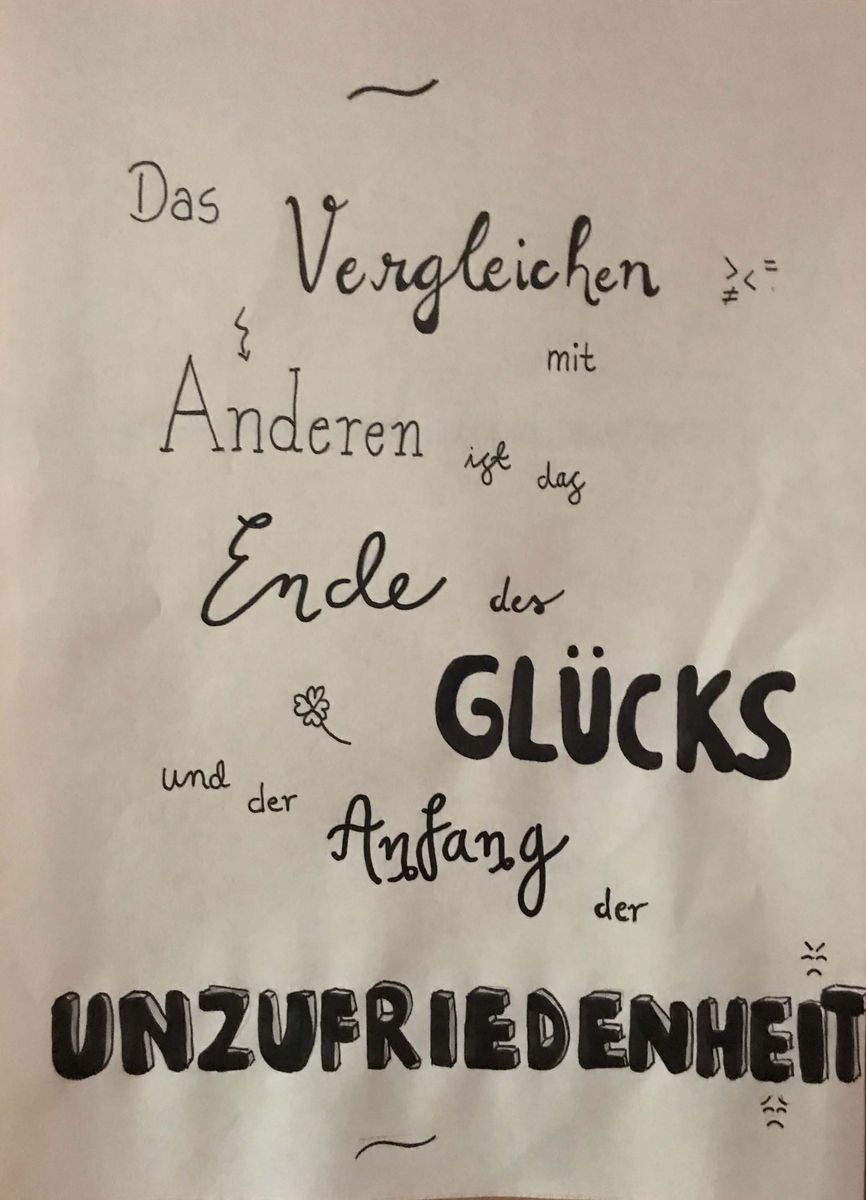 Das
Vergleichen > < = ≠
mit
Anderen ist das
Ende des
GLÜCKS
und der
Anfang
der
UNZUFRIEDENHEIT